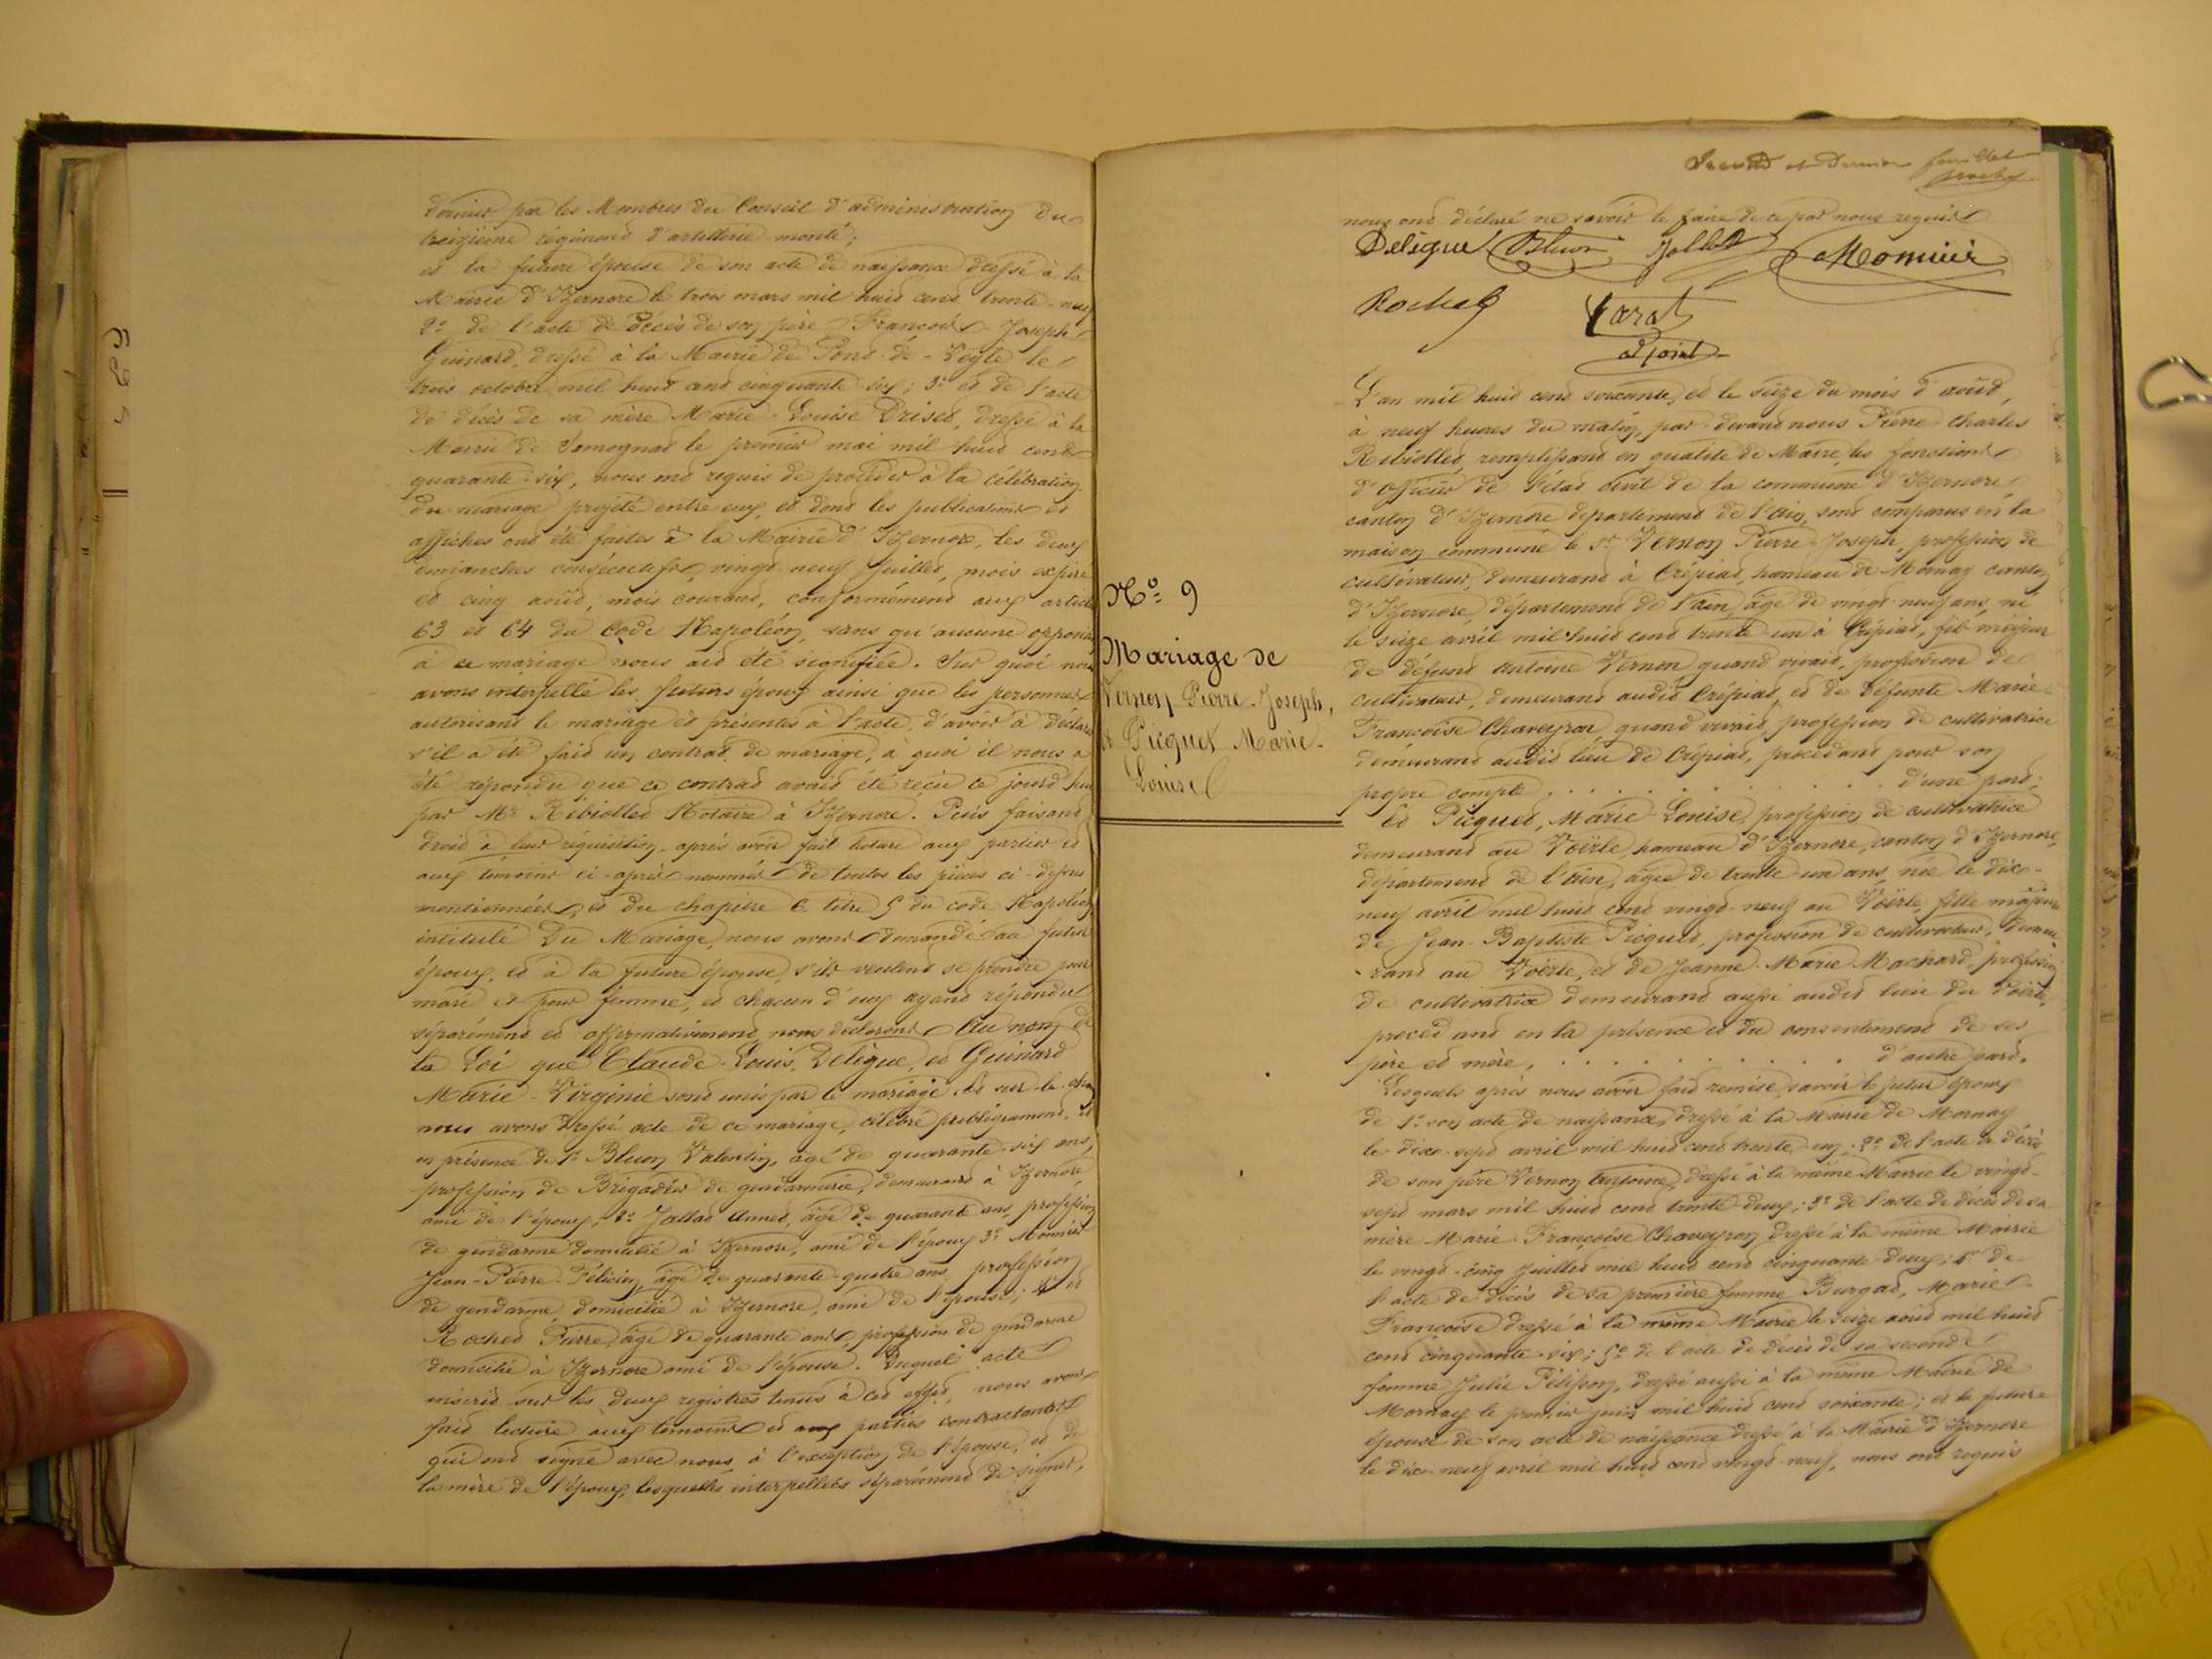 dernier par les Membres du Conseil d'administration du
treizième régiment d'artillerie monté;
et la future épouse de son acte de naissance dressé à la
Mairie d'Izernore le trois mars mil huit cent trente-neuf
2º de l'acte de décès de son père François-Joseph
Guinard, dressé à la Mairie de Pont-de-Veyle le
trois octobre mil huit cent cinquante six; 3º et de l'acte
de décès de sa mère Marie-Louise Driset, dressé à la
Mairie de Samognat le premier mai mil huit cent
quarante-six, nous ont requis de procéder à la célébration
du mariage projeté entre eux, et dont les publications et
affiches ont été faites à la Mairie d'Izernore, les deux
dimanches consécutifs, vingt neuf juillet, mois expiré
et cinq août, mois courant, conformément aux articles
63 et 64 du Code Napoléon, sans qu'aucune opposition
à ce mariage nous ait été signifiée. Sur quoi nous
avons interpellé les futurs époux ainsi que les personnes
autorisant le mariage et présentes à l'acte, d'avoir à déclarer
s'il a été fait un contrat de mariage, a quoi il nous a
été répondu que ce contrat avait été reçu ce jourd'hui
par Me Ribiollet Notaire à Izernore. Puis faisant
droit à leur réquisition, après avoir fait lecture aux parties et
aux témoins ci-après nommés de toutes les pièces ci-dessus
mentionnées, et du chapitre 6 titre 5 du code Napoléon
intitulé Du Mariage, nous avons demandé au futur
époux, et à la future épouse, s'ils veulent se prendre pour
mari et pour femme, et chacun d'eux ayant répondu
séparément et affirmativement, nous déclarons Au nom de
la Loi que Claude-Louis Deléque, et Guinard
Marie-Virginie sont unis par le mariage. Et sur-le-champ
nous avons dressé acte de ce mariage, célébré publiquement, et
en présence de 1º Bluon Valentin, agé de quarante-six ans,
profession de Brigadier de gendarmerie, demeurant à Izernore
ami de l'époux; 2º Jallad Annet, âgé de quarante ans, profession
de gendarme domicilié à Izernore, ami de l'époux 3º Monnier
Jean-Pierre Félicien, âgé de quarante-quatre ans, profession
de gendarme, domicilié à Izernore, ami de l'épouse; 4º et
Rochet Pierre, âgé de quarante ans, profession de gendarme
domicilié à Izernore ami de l'épouse. Duquel acte
inscrit sur les deux registres tenus à cet effet, nous avons
fait lecture aux témoins et aux parties contractantes
qui ont signé avec nous à l'exception de l'épouse, et de
la mère de l'époux, lesquelles interpellées séparément de signer,
Second et dernier feuillet
nous ont déclaré ne savoir le faire de ce par nous requis
Deléque Bluon Jallad Monnier
Rochet Carat
adjoint
L'an mil huit cent soixante, et le seize du mois d'août,
à neuf heures du matin, par devant nous Pierre Charles
Ribiollet, remplissant en qualité de Maire, les fonctions
d'officier de l'état civil de la commune d'Izernore,
canton d'Izernore département de l'ain, sont comparus en la
maison commune le sr Vernon Pierre-Joseph, profession de
cultivateur, demeurant à Crépiat, hameau de Mornay canton
d'Izernore, département de l'ain, âgé de vingt neuf ans, né
le seize avril mil huit cent trente un à Crépiat, fils majeur
de défunt Antoine Vernon quand vivait, profession de
cultivateur, demeurant audit Crépiat, et de défunte Marie-
Françoise Chaveyron, quand vivait, profession de cultivatrice
demeurant audit lieu de Crépiat, procédant pour son
propre compte . . . . . . . . . . d'une part;
Et Picquet, Marie-Louise, profession de cultivatrice
demeurant au Voërle, hameau d'Izernore, canton d'Izernore,
département de l'ain, âgée de trente un ans, née le dix-
neuf avril mil huit cent vingt-neuf au Voërle, fille majeure
de Jean-Baptiste Picquet, profession de cultivateur, demeu-
rant au Voërle, et de Jeanne-Marie Machard, profession
de cultivatrice demeurant aussi audit lieu du Voërle,
procédant en la présence et du consentement de ses
père et mère, . . . . . . . . . . d'autre part.
Lesquels après nous avoir fait remise, savoir le futur époux
de 1º son acte de naissance, dressé à la Mairie de Mornay
le dix-sept avril mil huit cent trente un; 2º de l'acte de décès
de son père Vernon Antoine, dressé à la même Mairie le vingt-
sept mars mil huit cent trente deux; 3º de l'acte de décès de sa
mère Marie-Françoise Chaveyron dressé à la même Mairie
le vingt-cinq Juillet mil huit cent cinquante-deux; 4º de
l'acte de décès de sa première femme Burgad, Marie
Françoise dressé à la même Mairie le seize août mil huit
cent cinquante-six; 5º de l'acte de décès de sa seconde
femme Julie Pélisson, dressé aussi à la même Mairie de
Mornay le premier juin mil huit cent soixante; et la future
épouse de son acte de naissance dressé à la Mairie d'Izernore
le dix-neuf avril mil huit cent vingt-neuf, nous ont requis
Nº 9
Mariage de
Vernon Pierre-Joseph,
et Picquet Marie-
Louise